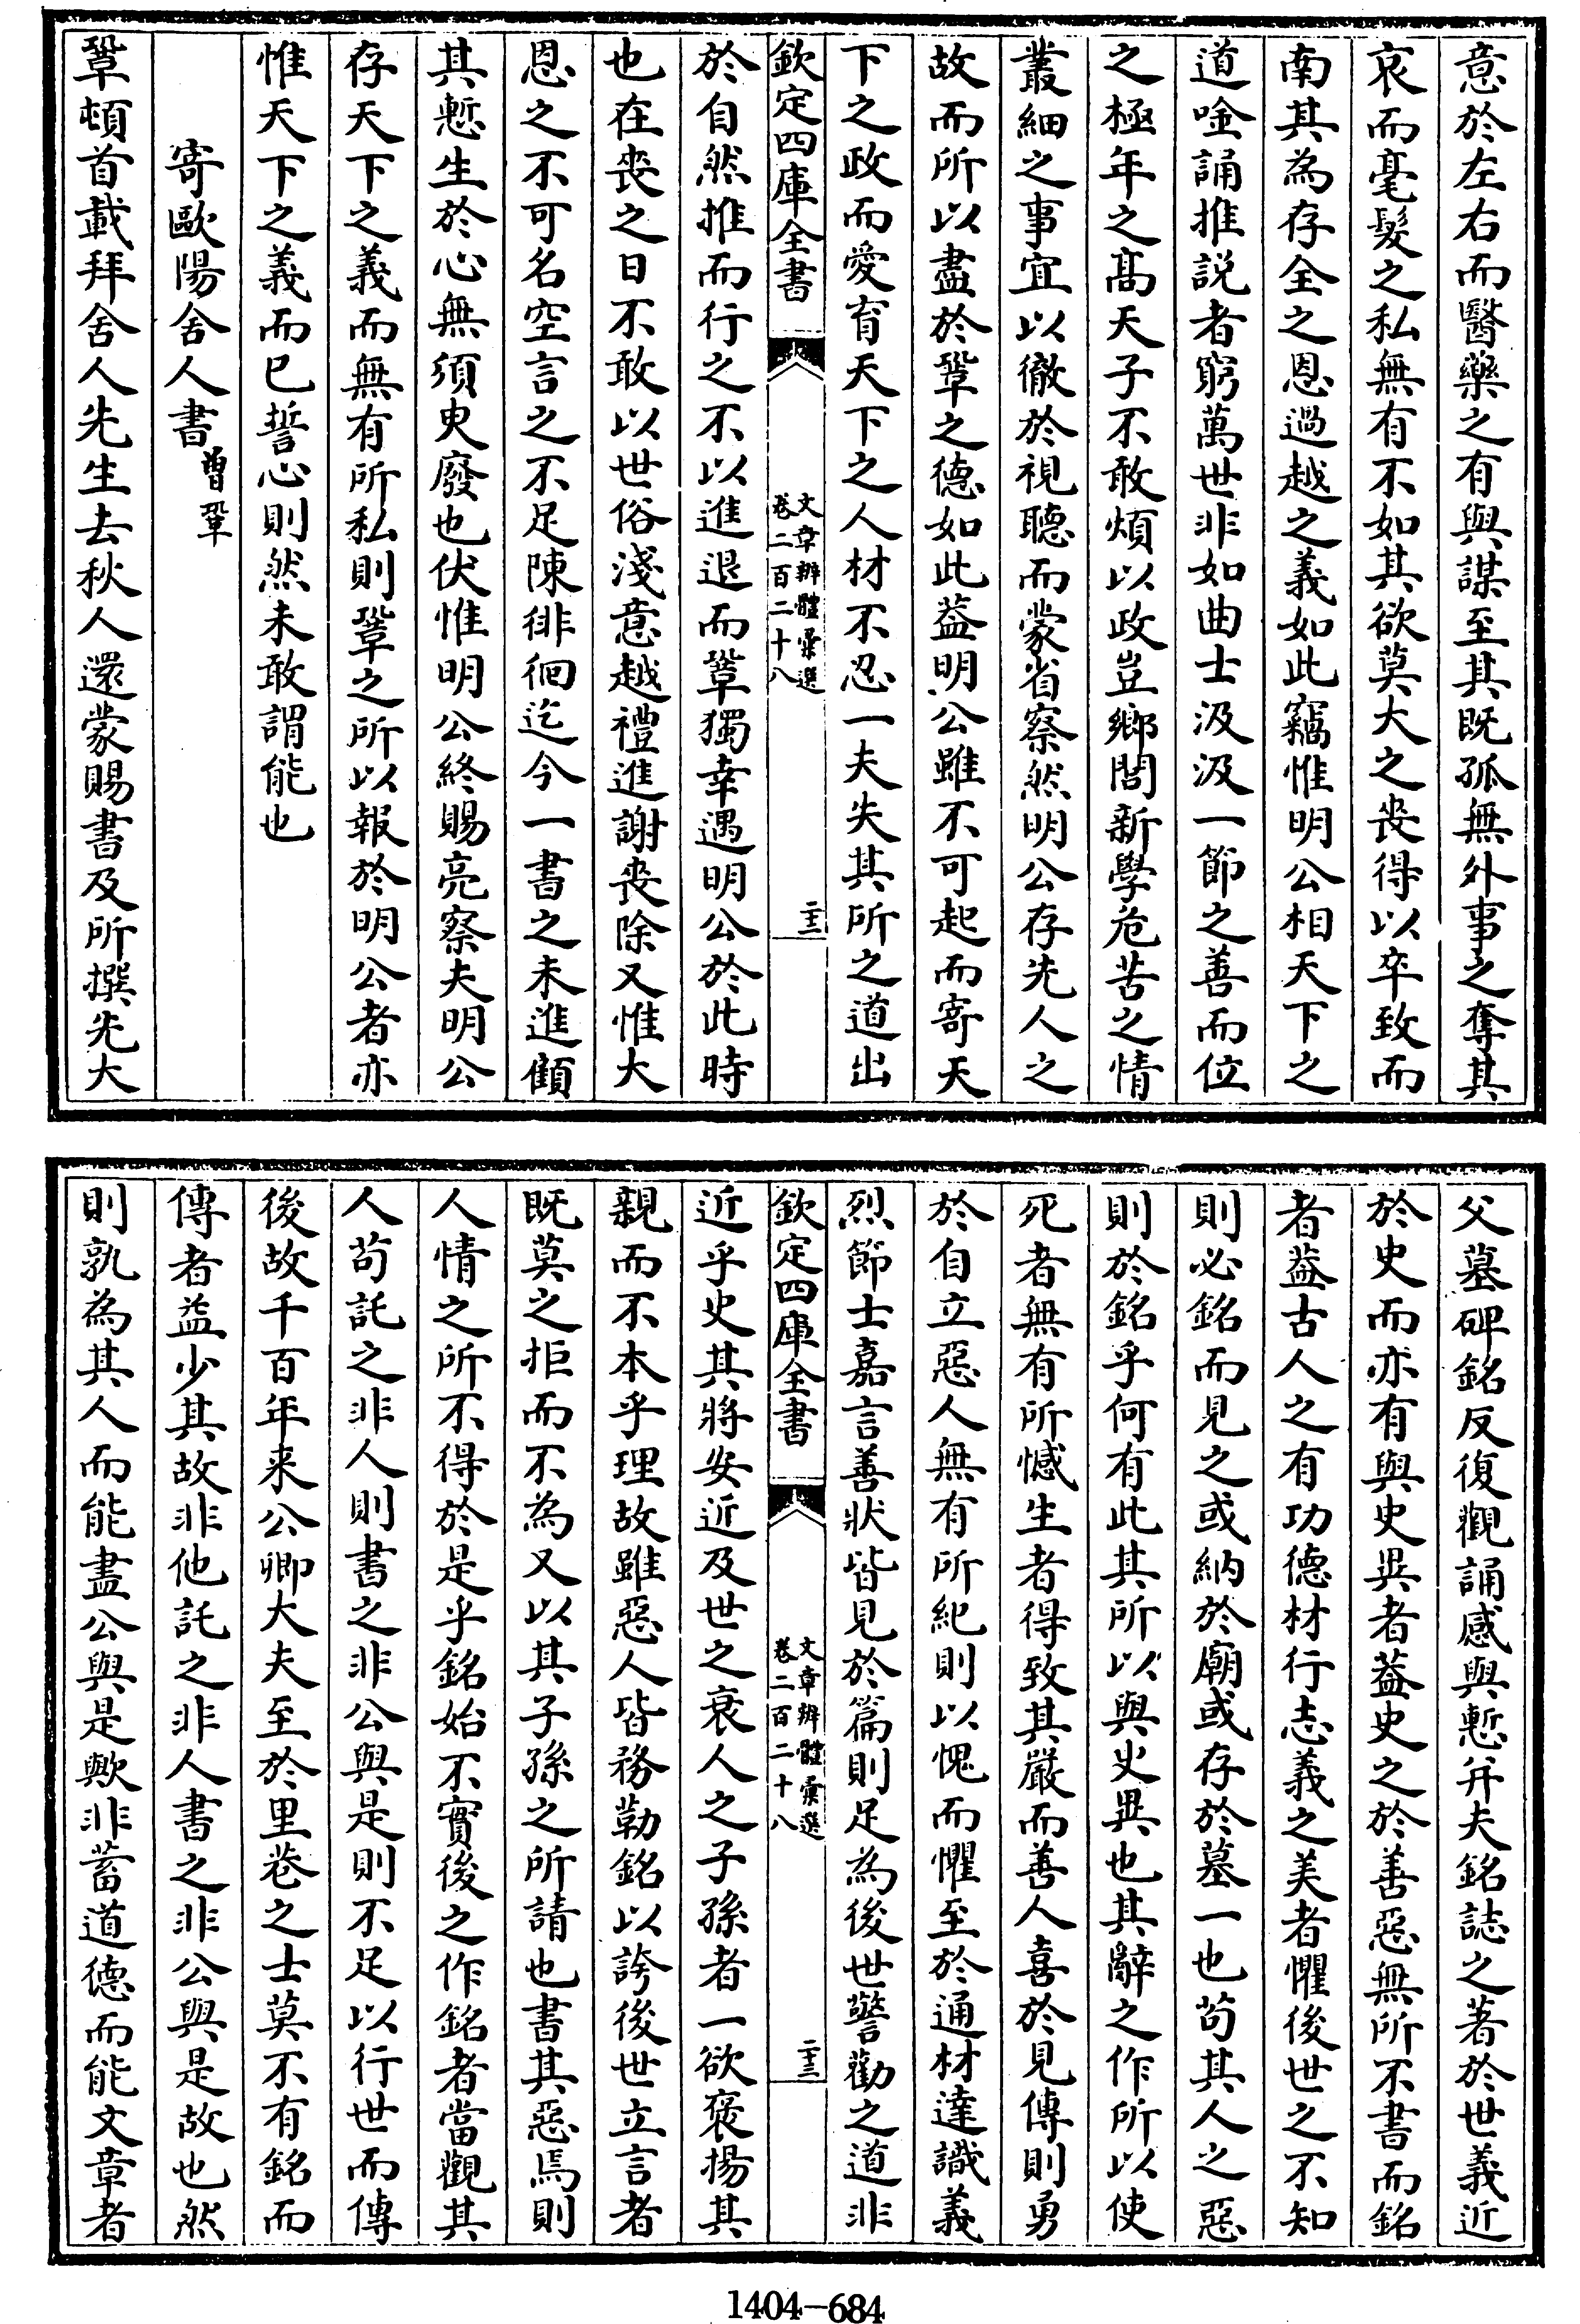 意於左右而醫藥之有與謀至其既孤無外事之奪其
哀而毫髮之私無有不如其欲莫大之喪得以卒致而
南其為存全之恩過越之義如此竊惟明公相天下之
道唫誦推説者窮萬世非如曲士汲汲一節之善而位
之極年之髙天子不敢煩以政豈鄉閭新學危苦之情
叢細之事宜以徹於視聽而蒙省察然明公存先人之
故而所以盡於鞏之德如此葢明公雖不可起而寄天
下之政而愛育天下之人材不忍一夫失其所之道出
欽定四庫全書
文章辨體彙選
卷二百二十八
二十三
於自然推而行之不以進退而鞏獨幸遇明公於此時
也在喪之日不敢以世俗淺意越禮進謝喪除又惟大
恩之不可名空言之不足陳徘徊迄今一書之未進顧
其慙生於心無須臾廢也伏惟明公終賜亮察夫明公
存天下之義而無有所私則鞏之所以報於明公者亦
惟天下之義而已誓心則然未敢謂能也
寄歐陽舍人書 曾鞏
鞏頓首載拜舍人先生去秋人還蒙賜書及所撰先大
父墓碑銘反復觀誦感與慙并夫銘誌之著於世義近
於史而亦有與史異者葢史之於善惡無所不書而銘
者葢古人之有功德材行志義之美者懼後世之不知
則必銘而見之或納於廟或存於墓一也茍其人之惡
則於銘乎何有此其所以與史異也其辭之作所以使
死者無有所憾生者得致其嚴而善人喜於見傳則勇
於自立惡人無有所紀則以愧而懼至於通材達識義
烈節士嘉言善狀皆見於篇則足為後世警勸之道非
欽定四庫全書
文章辨體彙選
卷二百二十八
二十三
近乎史其將安近及世之衰人之子孫者一欲褒揚其
親而不本乎理故雖惡人皆務勒銘以誇後世立言者
既莫之拒而不為又以其子孫之所請也書其惡焉則
人情之所不得於是乎銘始不實後之作銘者當觀其
人茍託之非人則書之非公與是則不足以行世而傳
後故千百年来公卿大夫至於里巷之士莫不有銘而
傳者益少其故非他託之非人書之非公與是故也然
則孰為其人而能盡公與是歟非蓄道德而能文章者
1404-684